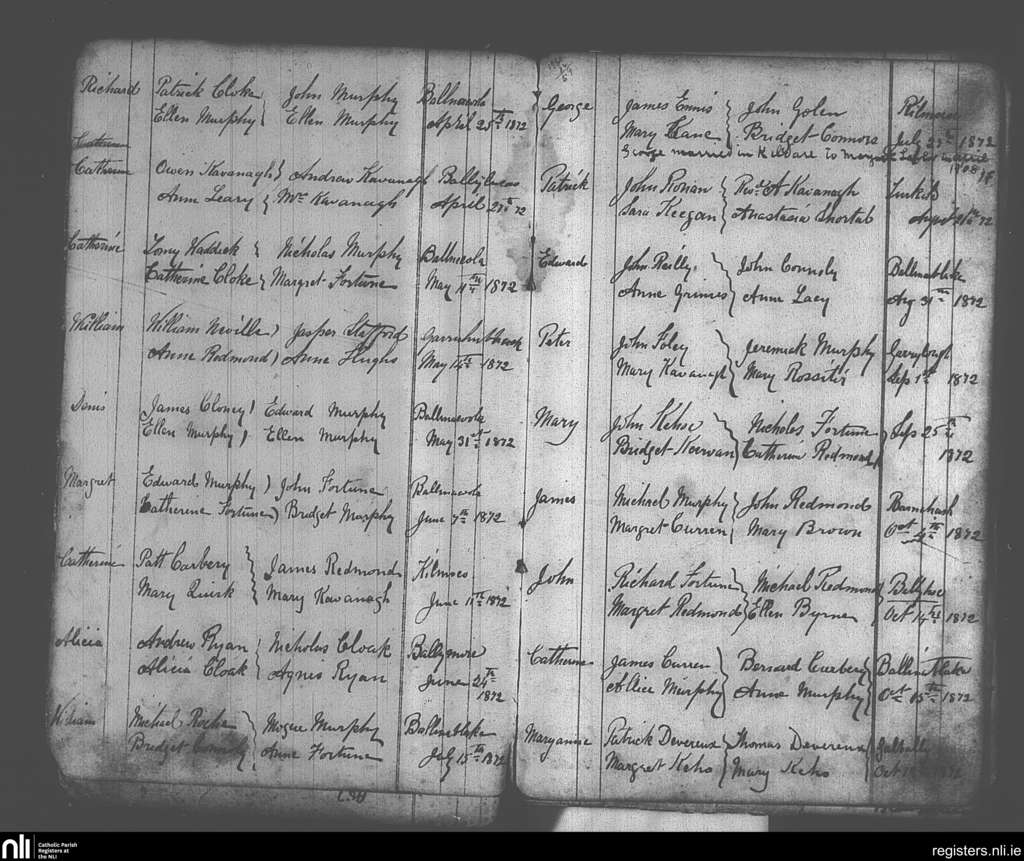 Richard Patrick Cloke John Murphy Ballnacola
Ellen Murphy Ellen Murphy April 25th 1872
Catherine
Catherine Owen Kavanagh Andrew Kavanagh
Anne Leary Mrs Kavanagh April 27th 72
Catherine Tomy Waddick Nicholas Murphy Ballnicola
Catherine Cloke Margret Fortune May 11th 1872
William William Neville Jasper Stafford
Anne Redmond Anne Hughs May 14th 1872
Denis James Cloney Edward Murphy Ballnacola
Ellen Murphy Ellen Murphy May 31st 1872
Margret Edward Murphy John Fortune Ballnacola
Catherine Fortune Bridget Murphy June 7th 1872
Catherine Patt Carbery James Redmond Kilmees
Mary Quirk Mary Kavanagh June 11th 1872
Alicia Andrew Ryan Nicholas Cloak Ballymore
Alicia Cloak Agnis Ryan June 24th
1872
William Michael Roche Mogue Murphy Ballinatlake
Bridget Connolly Anne Fortune July 15th 1872
George James Ennis John Golen
Mary Kane Bridget Connors July 25th 1872
George married in Kildare to
1908
Patrick John Ronan Revd A Kavanagh
Sara Keegan Anastasia Shortal 72
Edward John Reilly John Connoly Ballinatlake
Anne Grimes Anne Lacy Aug 31st 1872
Peter John Foley Jeremiek Murphy
Mary Kavanagh Mary Rossiter Sep 1st 1872
Mary John Kehoe Nicholas Fortune Sep 25th
Bridget Keirvan Catherine Redmond 1872
James Michael Murphy John Redmond
Margret Curren Mary Brown Oct 4th 1872
John Richard Fortune Michael Redmond
Margret Redmond Ellen Byrne Oct 14th 1872
Catherine James Curren Bernard Carbery Ballinatlake
Allice Murphy Anne Murphy Oct 15th 1872
Maryanne Patrick Devereux Thomas Devereux
Margret Keho Mary Keho Oct 1872
nli Catholic Parish
Registers at
the NLI
registers.nli.ie